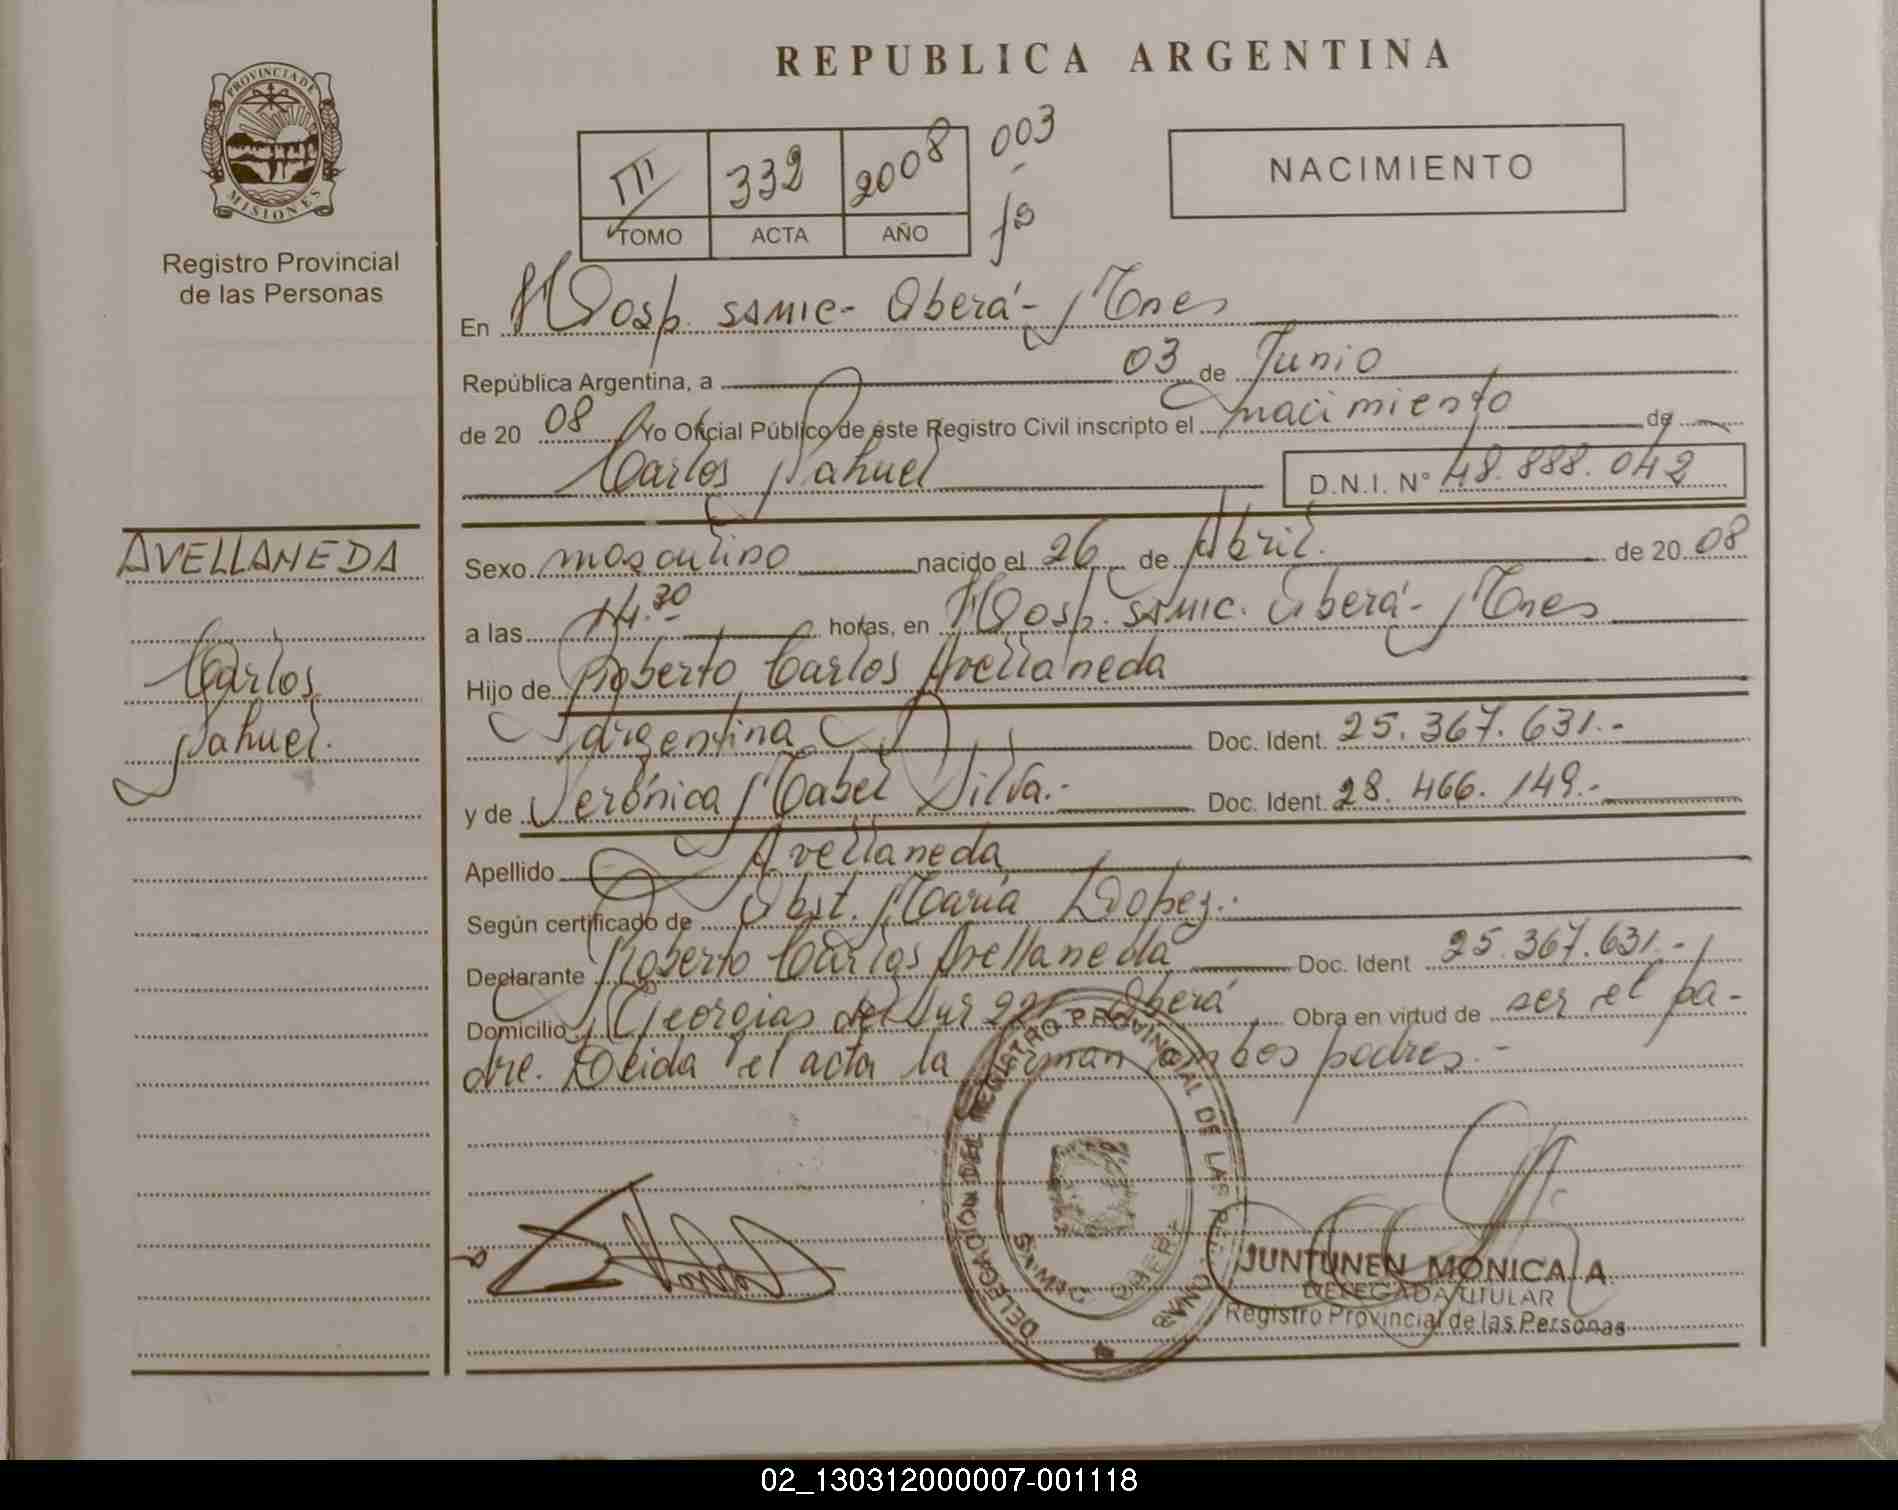 PROVINCIA DE
MISIONES
Registro Provincial
de las Personas
AVELLANEDA
Carlos
Nahuel.
REPUBLICA ARGENTINA
III 332 2008 003
TOMO ACTA AÑO fs
NACIMIENTO
En Hosp. SAMIC- Oberá- Mnes
República Argentina, a 03 de Junio
de 20 08 Yo Oficial Público de este Registro Civil inscripto el nacimiento de
Carlos Nahuel D.N.I. N° 48.888.042
Sexo masculino nacido el 26 de Abril. de 20 08
a las 14.30 horas, en Hosp. SAMIC. Oberá- Mnes
Hijo de Roberto Carlos Avellaneda
argentina Doc. Ident. 25.367.631.-
y de Verónica Mabel Silva.- Doc. Ident. 28.466.149.-
Apellido Avellaneda
Según certificado de Obst. María Lopez.
Declarante Roberto Carlos Avellaneda Doc. Ident 25.367.631.-
Domicilio Georgias del Sur 221 Oberá Obra en virtud de ser el pa-
dre. Leida el acta la firman ambos padres.-
DELEGACIÓN DEL REGISTRO PROVINCIAL DE LAS PERSONAS
SAMIC OBERÁ
JUNTUNEN MONICA A.
DELEGADA TITULAR
Registro Provincial de las Personas
02_130312000007-001118